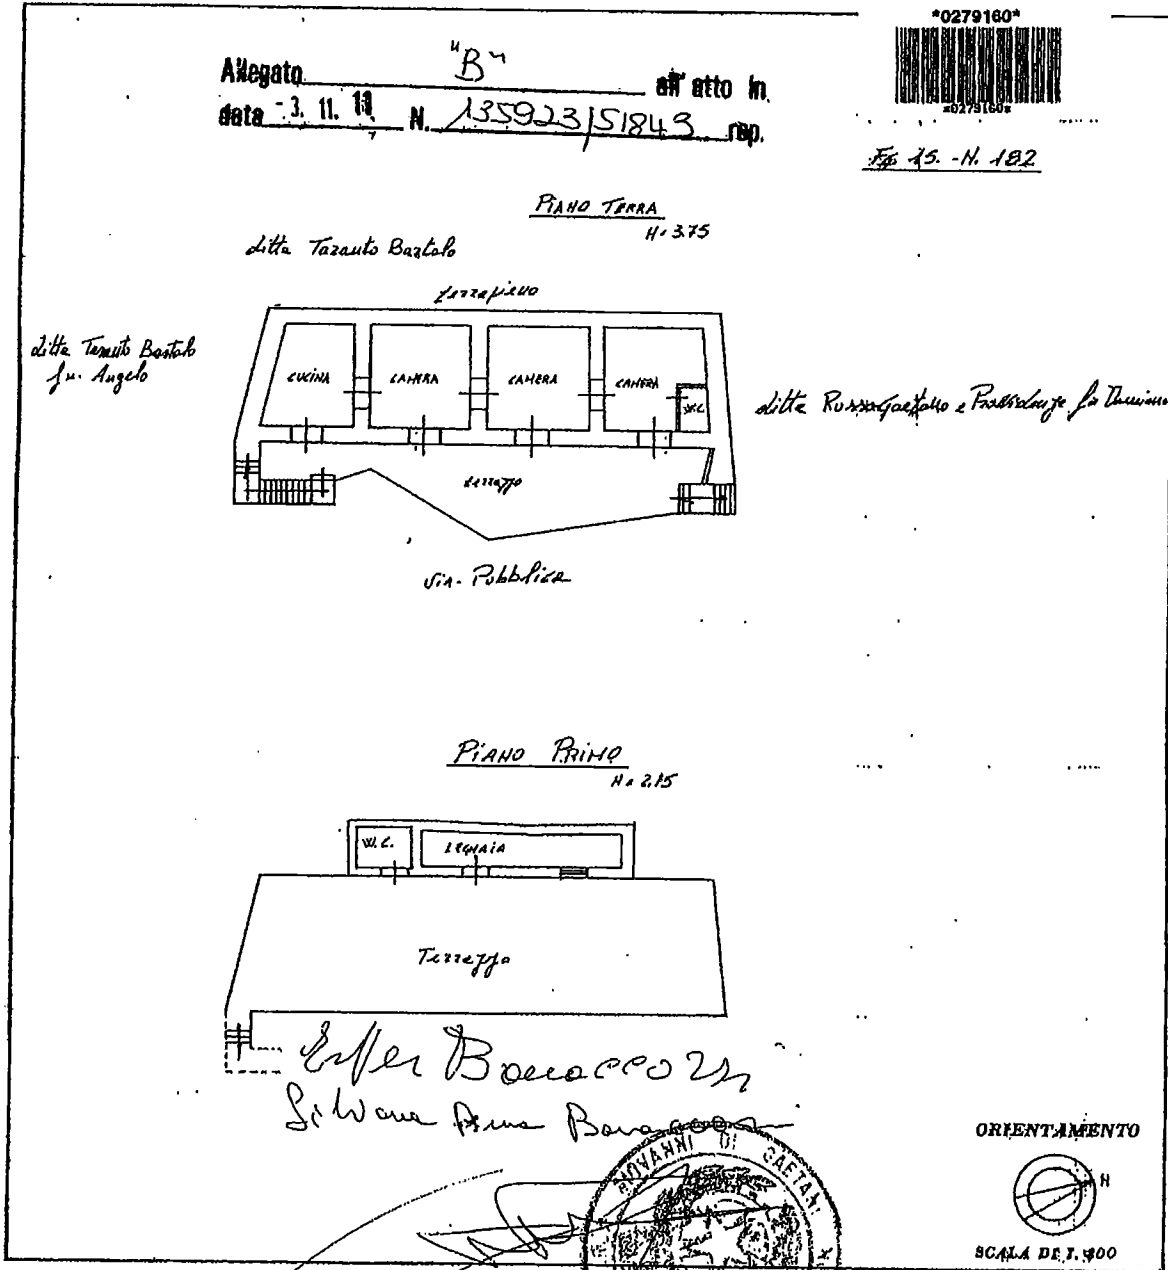 *0279160*
*0279160*
Allegato "B" all' atto in
data -3. 11. 11 N. 135923/51849 rep.
Fg 15. - N. 182
PIANO TERRA
H. 3.75
ditta Taranto Bartolo
terrapieno
ditta Taranto Bartolo
fu. Angelo
CUCINA
CAMERA
CAMERA
CAMERA
W.C.
ditta Russo Gaetano e
terrazzo
Via. Pubblica
PIANO PRIMO
H = 2.15
W.C.
LEGNAIA
Terrazzo
Bonaccorsi
Silvana Anna Bonaccorsi
GIOVANNI DI GAETANI
ORIENTAMENTO
N
SCALA DI 1.